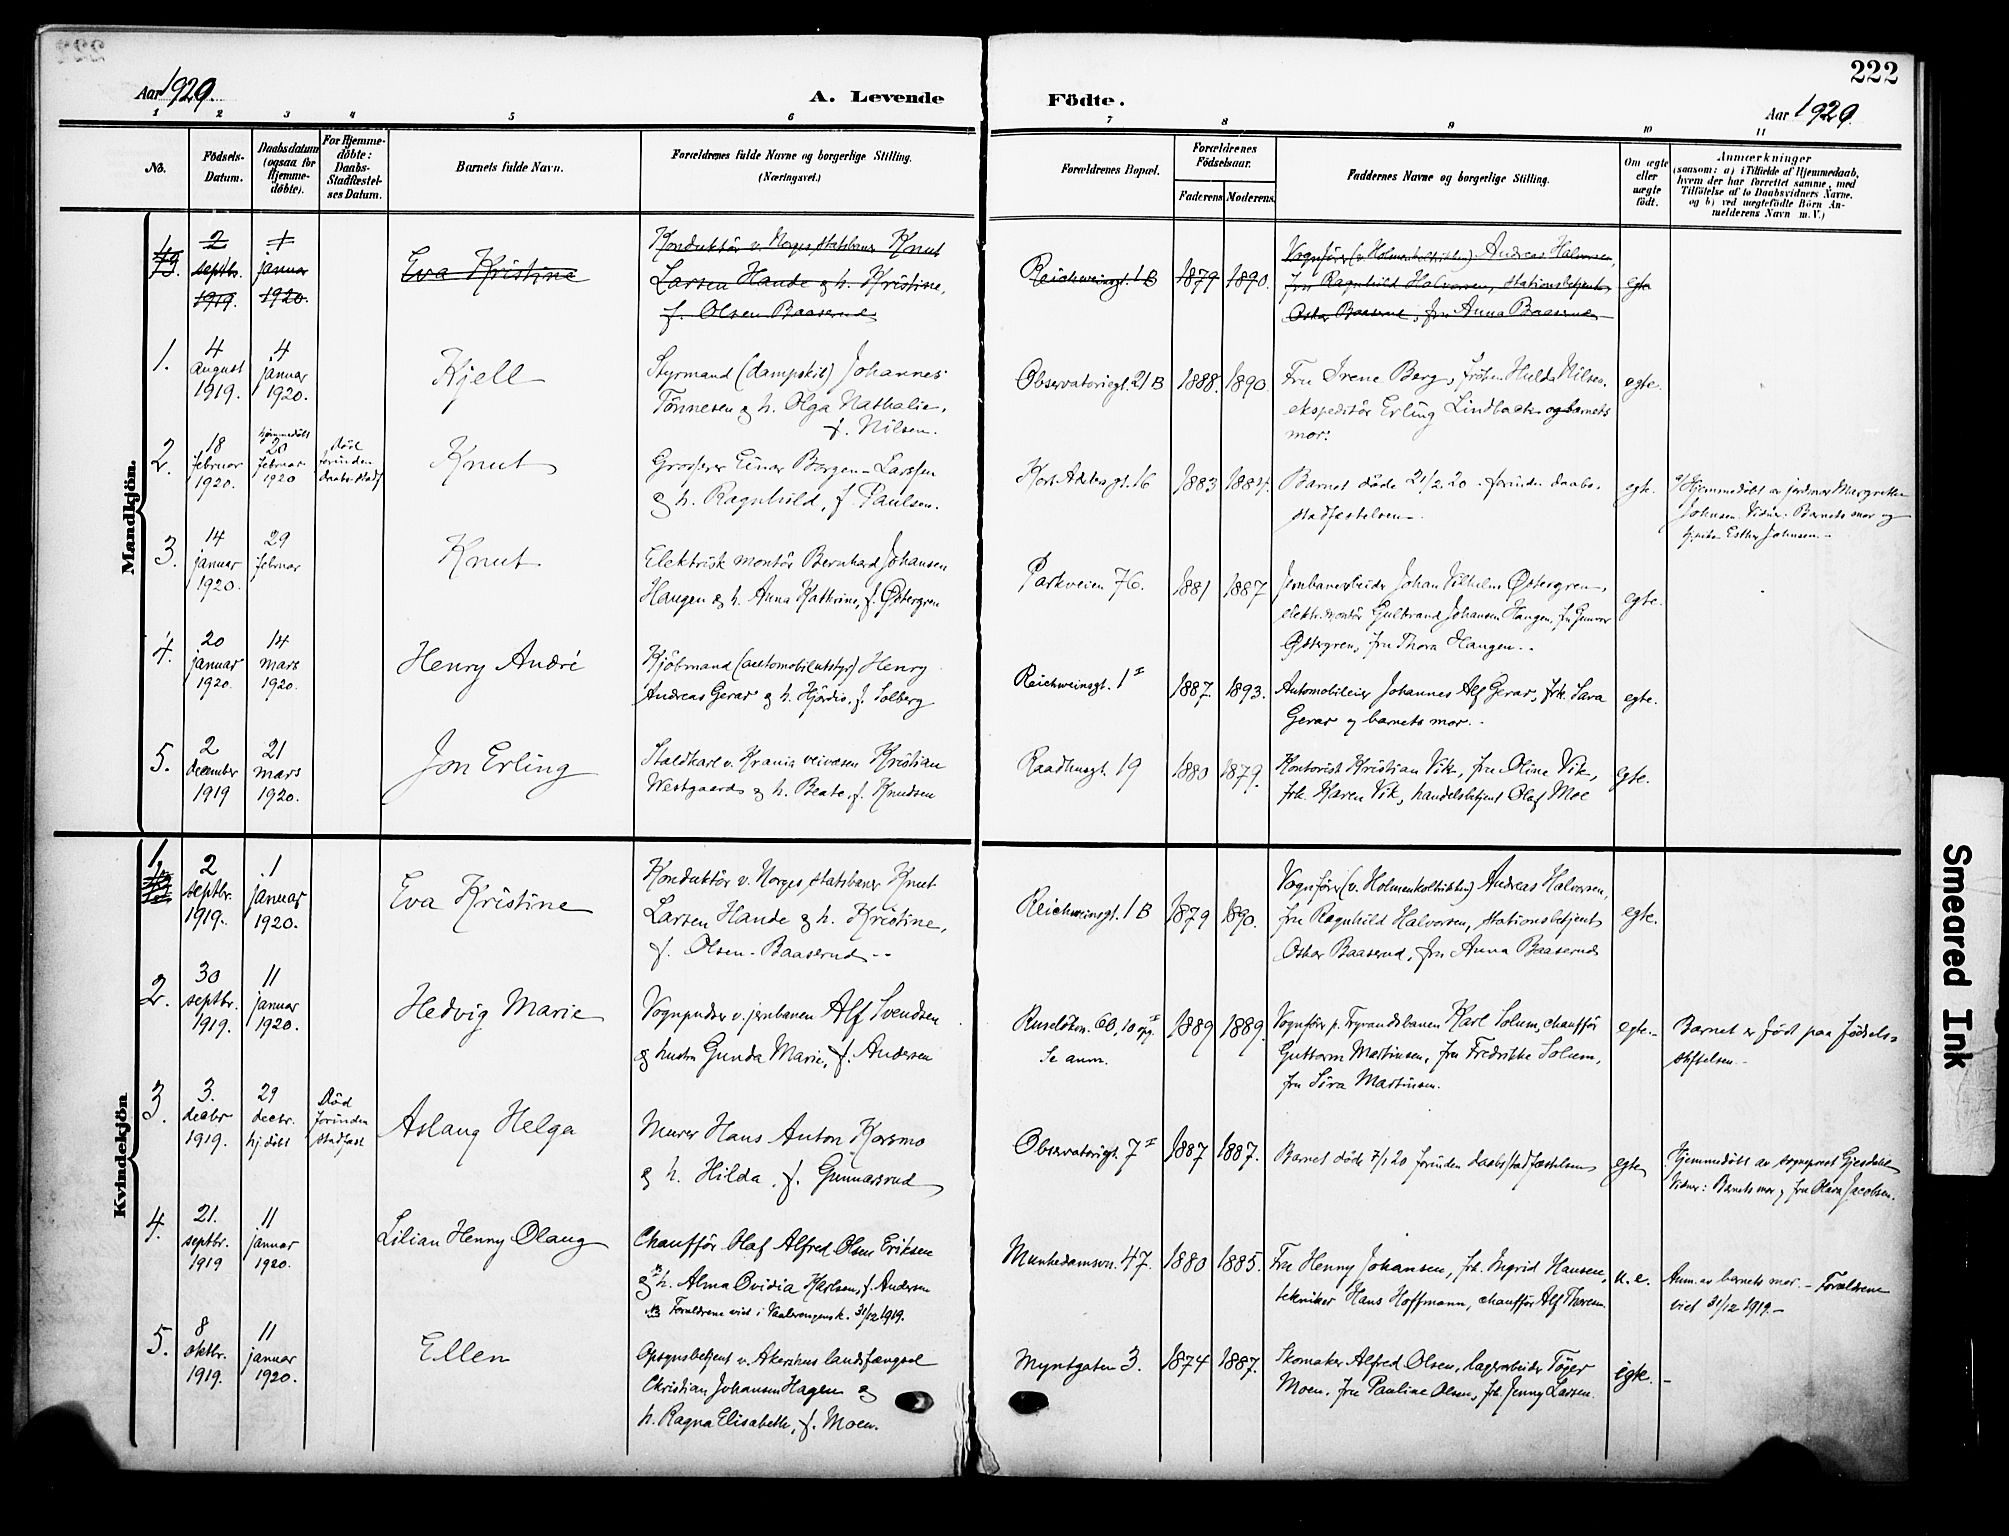 222
Aar 1920.
A. Levende
Födte.
Aar 1920.
1 2 3 4 5 6 7 8 9 10 11
No.
Födsels-
Datum.
Daabsdatum
(ogsaa for
Hjemme-
döbte).
For Hjemme-
döbte:
Daabs-
Stadfæstel-
ses Datum.
Barnets fulde Navn.
Forældrenes fulde Navne og borgerlige Stilling.
(Næringsvei.)
Forældrenes Bopæl.
Forældrenes
Födselsaar.
Faderens Moderens
Faddernes Navne og borgerlige Stilling.
Om ægte
eller
uægte
født.
Anmærkninger
(saasom: a) i Tilfælde af Hjemmedaab,
hvem der har forrettet samme, med
Tilföielse af to Daabsvidners Navne,
og b) ved uægtefödte Börn An-
melderens Navn m. V.)
Mandkjön.
2
septbr.
1919.
1
januar
1920.
Eva Kristine
Konduktör v. Norges statsbaner Knut
Larsen Hande & h. Kristine,
f. Olsen Baaserud
Reichweinsgt. 1 B
1879 1890.
Vognförer (v. Holmenkolbanen) Andreas Halvorsen,
fru Ragnhild Halvorsen, stationsbetjent
Oskar Baaserud, fru Anna Baaserud
egte
1.
4
august
1919.
4
januar
1920.
Kjell
Styrmand (dampskib) Johannes
Tönnesen & h. Olga Nathalie,
f. Nilsen.
Observatoriegt. 21 B
1888. 1890.
Fru Irene Berg, fröken Hulda Nilsen,
ekspeditör Erling Lindbæk og barnets
mor.
egte.
2.
18
februar
1920.
hjemmedöbt
20
februar
1920
Död
forinden
Knut
Grosserer Einar Borgen-Larssen
& h. Ragnhild, f. Paulsen.
1883 1884.
Barnet döde 21/2 20 forinden daabs-
stadfæstelsen.
egte.
Hjemmedöbt av jordmor Margrethe
Johnsen. Vidner: Barnets mor og
Esther Johnsen.
3.
14
januar
1920.
29
februar
Knut
Elektrisk montör Bernhard Johansen
Haugen & h. Anna Kathrine, f. Östergren
Parkveien 76.
1881 1887
Jernbanearbeider Johan Vilhelm Östergren,
elektr. montör Gulbrand Johansen Haugen, fru Gunvor
Östergren, fru Thora Haugen.
egte.
4.
20
januar
1920.
14
mars
1920.
Henry André
Kjöbmand (automobilutstyr) Henry
Andreas Gerar & h. Hjördis, f. Solberg
Reichweinsgt. 1 I
1887. 1893.
Automobileier Johannes Alf Gerar, frk. Sara
Gerar og barnets mor.
egte.
5.
2
december
1919
21
mars
1920.
Jon Erling
Staldkarl v. Kranis veivesen Kristian
Westgaard & h. Beate, f. Knudsen
Raadhusgt. 19
1880 1879.
Kontorist Kristian Vik, fru Oline Vik,
frk. Karen Vik, handelsbetjent Olaf Moe
egte.
Kvindekjön
1.
2
septbr.
1919.
1
januar
1920.
Eva Kristine
Konduktör v. Norges statsbaner Knut
Larsen Hande & h. Kristine,
f. Olsen-Baaserud
Reichweinsgt. 1 B
1879 1890.
Vognförer (v. Holmenkolbanen) Andreas Halvorsen,
fru Ragnhild Halvorsen, stationsbetjent
Oskar Baaserud, fru Anna Baaserud
egte.
2.
30
septbr.
1919.
11
januar
1920.
Hedvig Marie
Vognpudser v. jernbanen Alf Svendsen
& hustru Gunda Marie, f. Andersen
Ruselökv. 60, 10 opg. I
Se anm.
1889 1889.
Vognförer p. Tryvandsbanen Karl Solum, chaufför
Guttorm Martinsen, fru Fredrikke Solum,
fru Sina Martinsen.
egte.
Barnet er född paa Födsels-
stiftelsen.
3.
3.
decbr
1919.
29
decbr.
hj döbt
Död
forinden
stadfæst
Aslaug Helga
Murer Hans Anton Korsmo
& h. Hilda, f. Gunnarsrud
Observatoriegt. 7 I
1887 1887.
Barnet döde 7/1 20 forinden daabsstadfæstelsen
egte
Hjemmedöbt av sogneprest Gjesdahl
Vidner: Barnets mor & fru Klara Jacobsen.
4.
21.
septbr.
1919
11
januar
1920.
Lilian Henny Olaug
Chaufför Olaf Alfred Olsen Eriksen
& h. Alma Ovidia Karlsen, f. Andersen
Forældrene viet i Vaalerengens k. 31/12 1919.
Munkedamsvn. 47.
1880 1885.
Fru Henny Johansen, frk. Ingrid Hansen,
tekniker Hans Hoffmann, chaufför Alf Thoresen.
u.e.
Anm. av barnets mor. - Forældrene
viet 31/12 1919.
5.
8
oktbr.
1919.
11
januar
1920.
Ellen
Opsynsbetjent v. Akershus landsfængsel
Christian Johansen Hagen &
h. Ragna Elisabeth, f. Moen.
Myntgaten 3.
1874 1887.
Skomaker Alfred Olsen, lagerarbeider Töger
Moen, fru Pauline Olsen, frk. Jenny Larsen.
egte.
Smeared Ink